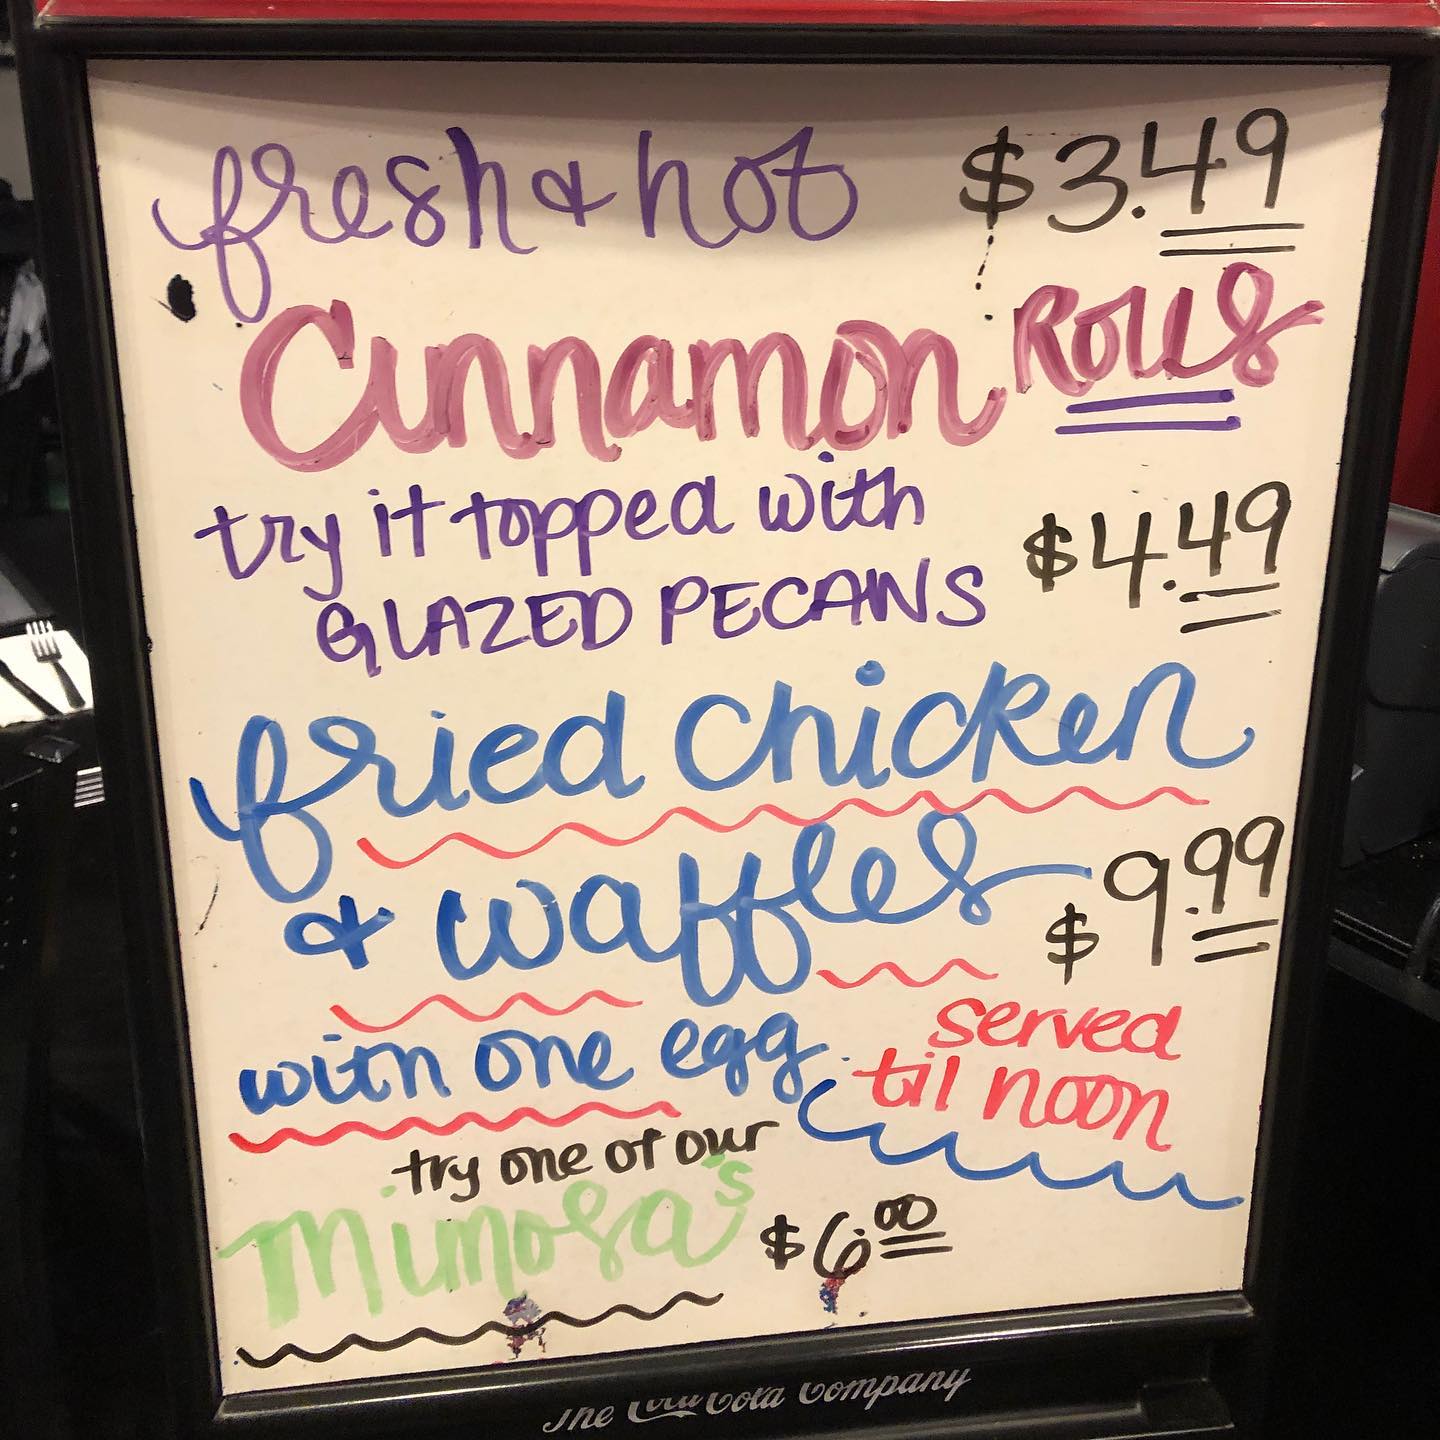 fresh & hot $3.49
Cinnamon Rolls
try it topped with
GLAZED PECANS $4.49
fried chicken
& waffles $9.99
with one egg
served
til noon
try one of our
mimosa's $6.00
The Coca Cola Company